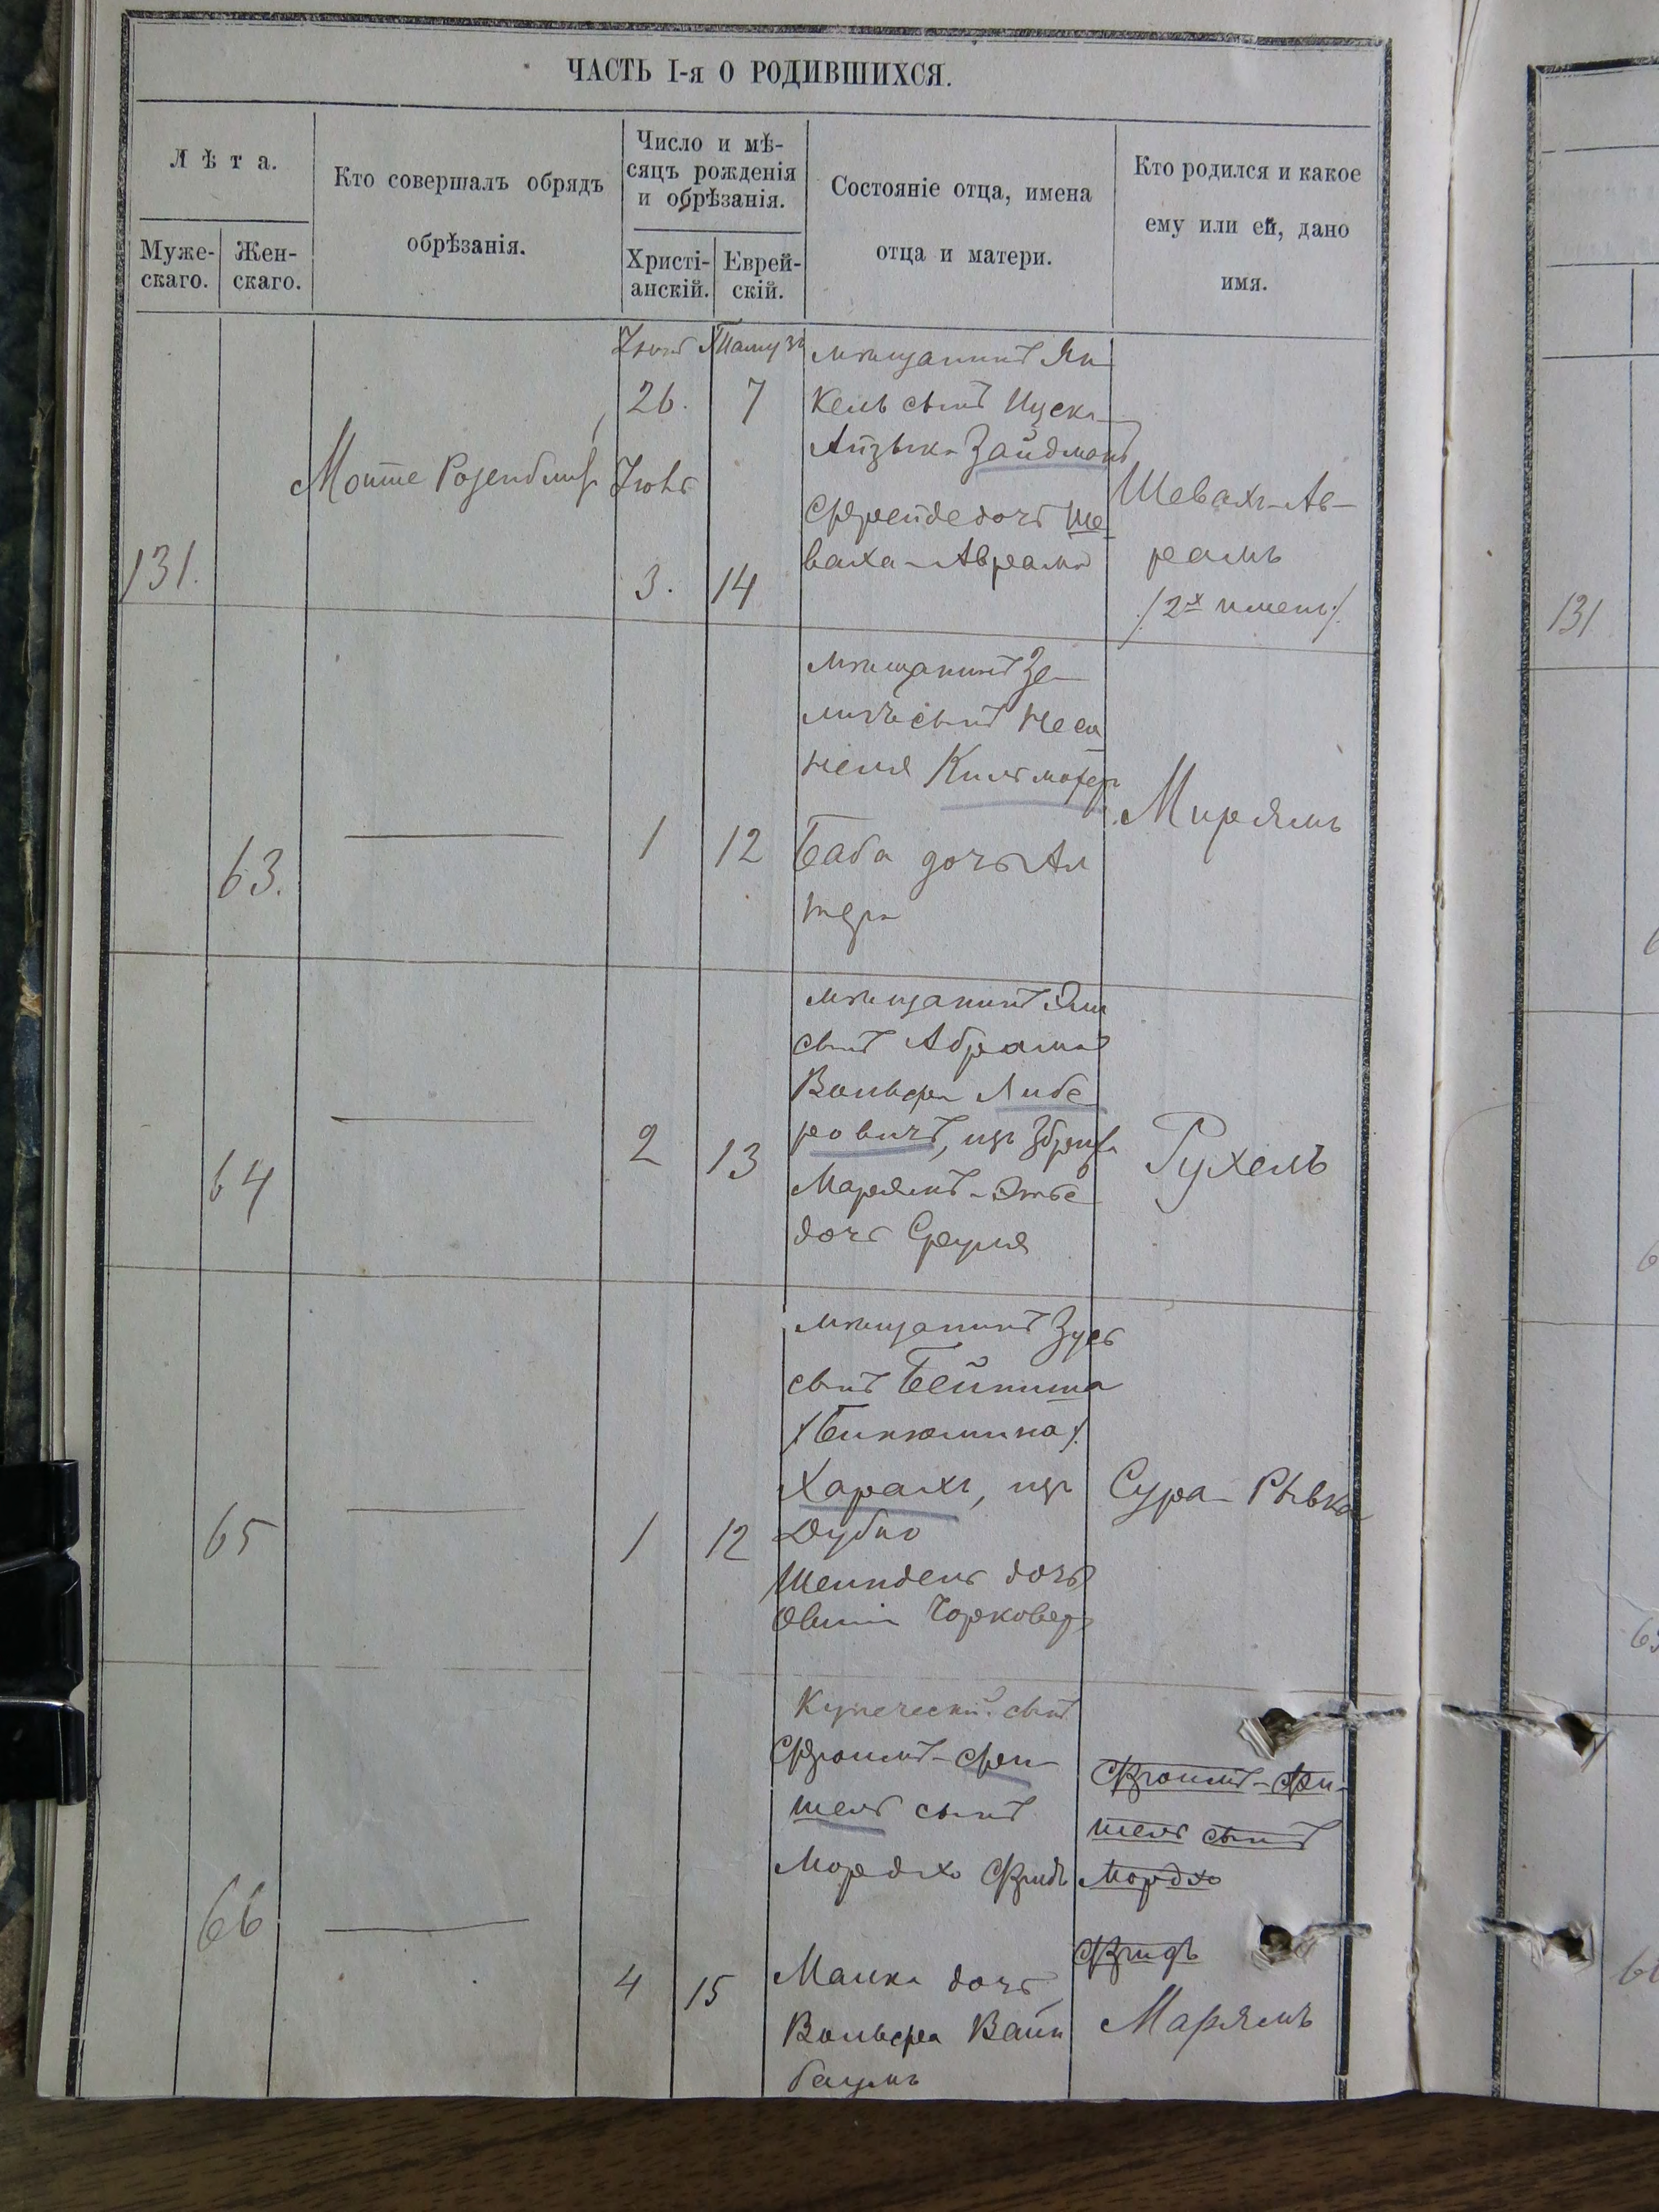 ЧАСТЬ I-я О РОДИВШИХСЯ.
Лѣта.
Муже-
скаго.
Жен-
скаго.
Кто совершалъ обрядъ
обрѣзанія.
Число и мѣ-
сяцъ рожденія
и обрѣзанія.
Христі-
анскій.
Еврей-
скій.
Состояніе отца, имена
отца и матери.
Кто родился и какое
ему или ей, дано
имя.
131.
Мотте Розенблит
Іюнь
26.
Іюль
3.
Тамузъ
7
14
мѣщанинъ Ян
кель сынъ Іцска
Айзыка Зайдманъ
Фрейде дочь Ше
ваха-Авраама
Шевахъ-Ав-
раамъ
/:2х имень:/
131
63.
1
12
мѣщанинъ Зе
ликъ сынъ Неса
неля
Баба дочь Ал
тера
Мирямъ
64
2
13
мѣщанинъ
сынъ Абрама
Вольфа Либе
ровичъ, изъ Збриж
Марямъ-Этье
дочь Сруля
Рухель
65
1
12
мѣщанинъ Зусь
сынъ Бейниша
/:Биньомина:/
Харахъ, изъ
Дубно
Шейндель дочь
Овшіи Чорковер
Сура-Рывка
66
4
15
Купеческій сынъ
Фроимъ-Фи
шель сынъ
Мордхо Фридъ
Малка дочь
Вольфа Вайн
баумъ
Фроимъ-Фи-
шель сынъ
Мордхо
Фридъ
Марямъ